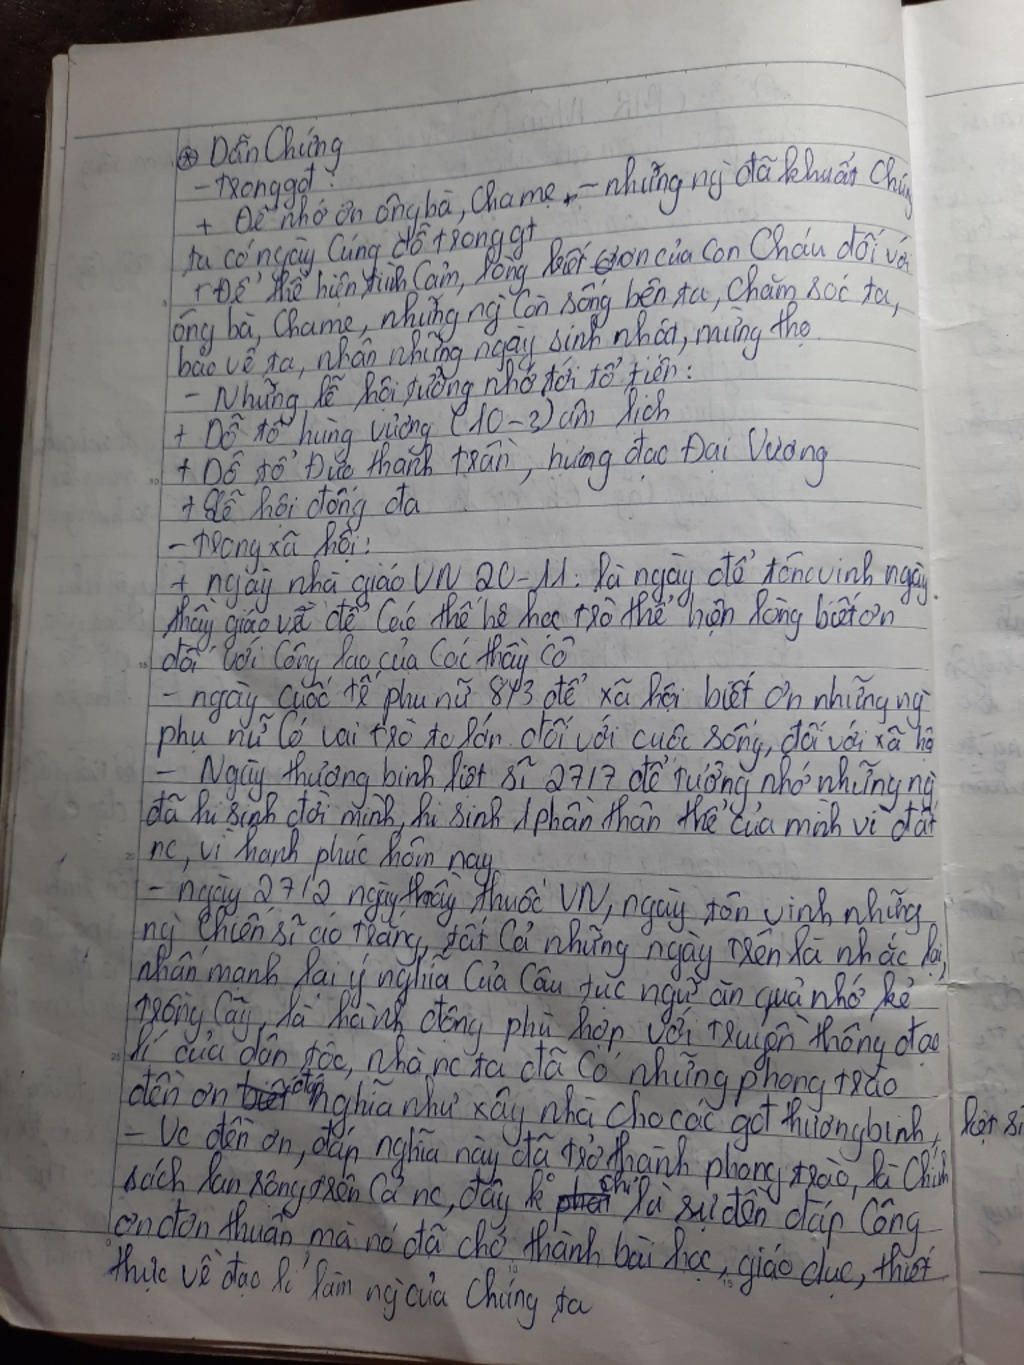 ⊛ Dẫn Chứng
- trong gđ:
+ Để nhớ ơn ông bà, Cha mẹ, - những ng đã khuất Chúng
ta có ngày Cúng dỗ trong gt
+ Để thể hiện tình Cảm, lòng biết ơn của Con Cháu đối với
ông bà, Cha mẹ, những ng Còn sống bên ta, Chăm sóc ta,
bảo vệ ta, nhân những ngày sinh nhật, mừng thọ.
- Những lễ hội tưởng nhớ tới tổ tiên:
+ Dỗ tổ hùng vương (10-3) âm lịch
+ Dỗ tổ Đức thánh trần, hưng đạo Đại Vương
+ Lễ hội đống đa
- trong xã hội:
+ ngày nhà giáo VN 20-11: là ngày để tôn vinh ngày
thầy giáo và để Các thế hệ học trò thể hiện lòng biết ơn
đối với Công lao của Các thầy Cô
- ngày quốc tế phụ nữ 8/3 để xã hội biết ơn những ng
phụ nữ Có vai trò to lớn đối với cuộc sống, đối với xã hộ
- Ngày thương binh liệt sĩ 27/7 để tưởng nhớ những ng
đã hi sinh đời mình, hi sinh 1 phần thân thể của mình vì đất
nc, vì hạnh phúc hôm nay
- ngày 27/2 ngày thầy thuốc VN, ngày tôn vinh những
ng chiến sĩ áo trắng, tất Cả những ngày trên là nhắc lại,
nhấn mạnh lại ý nghĩa Của Câu tục ngữ ăn quả nhớ kẻ
trồng Cây, là hành động phù hợp với truyền thống đạo
lí của dân tộc, nhà nc ta đã Có những phong trào
đền ơn đáp nghĩa như xây nhà cho các gđ thương binh, liệt sĩ
- Vc đền ơn, đáp nghĩa này đã trở thành phong trào, là Chính
sách lan rộng trên Cả nc, đây k chỉ là sự đền đáp Công
ơn đơn thuần mà nó đã chở thành bài học, giáo dục, thiết
thực về đạo lí làm ng của Chúng ta